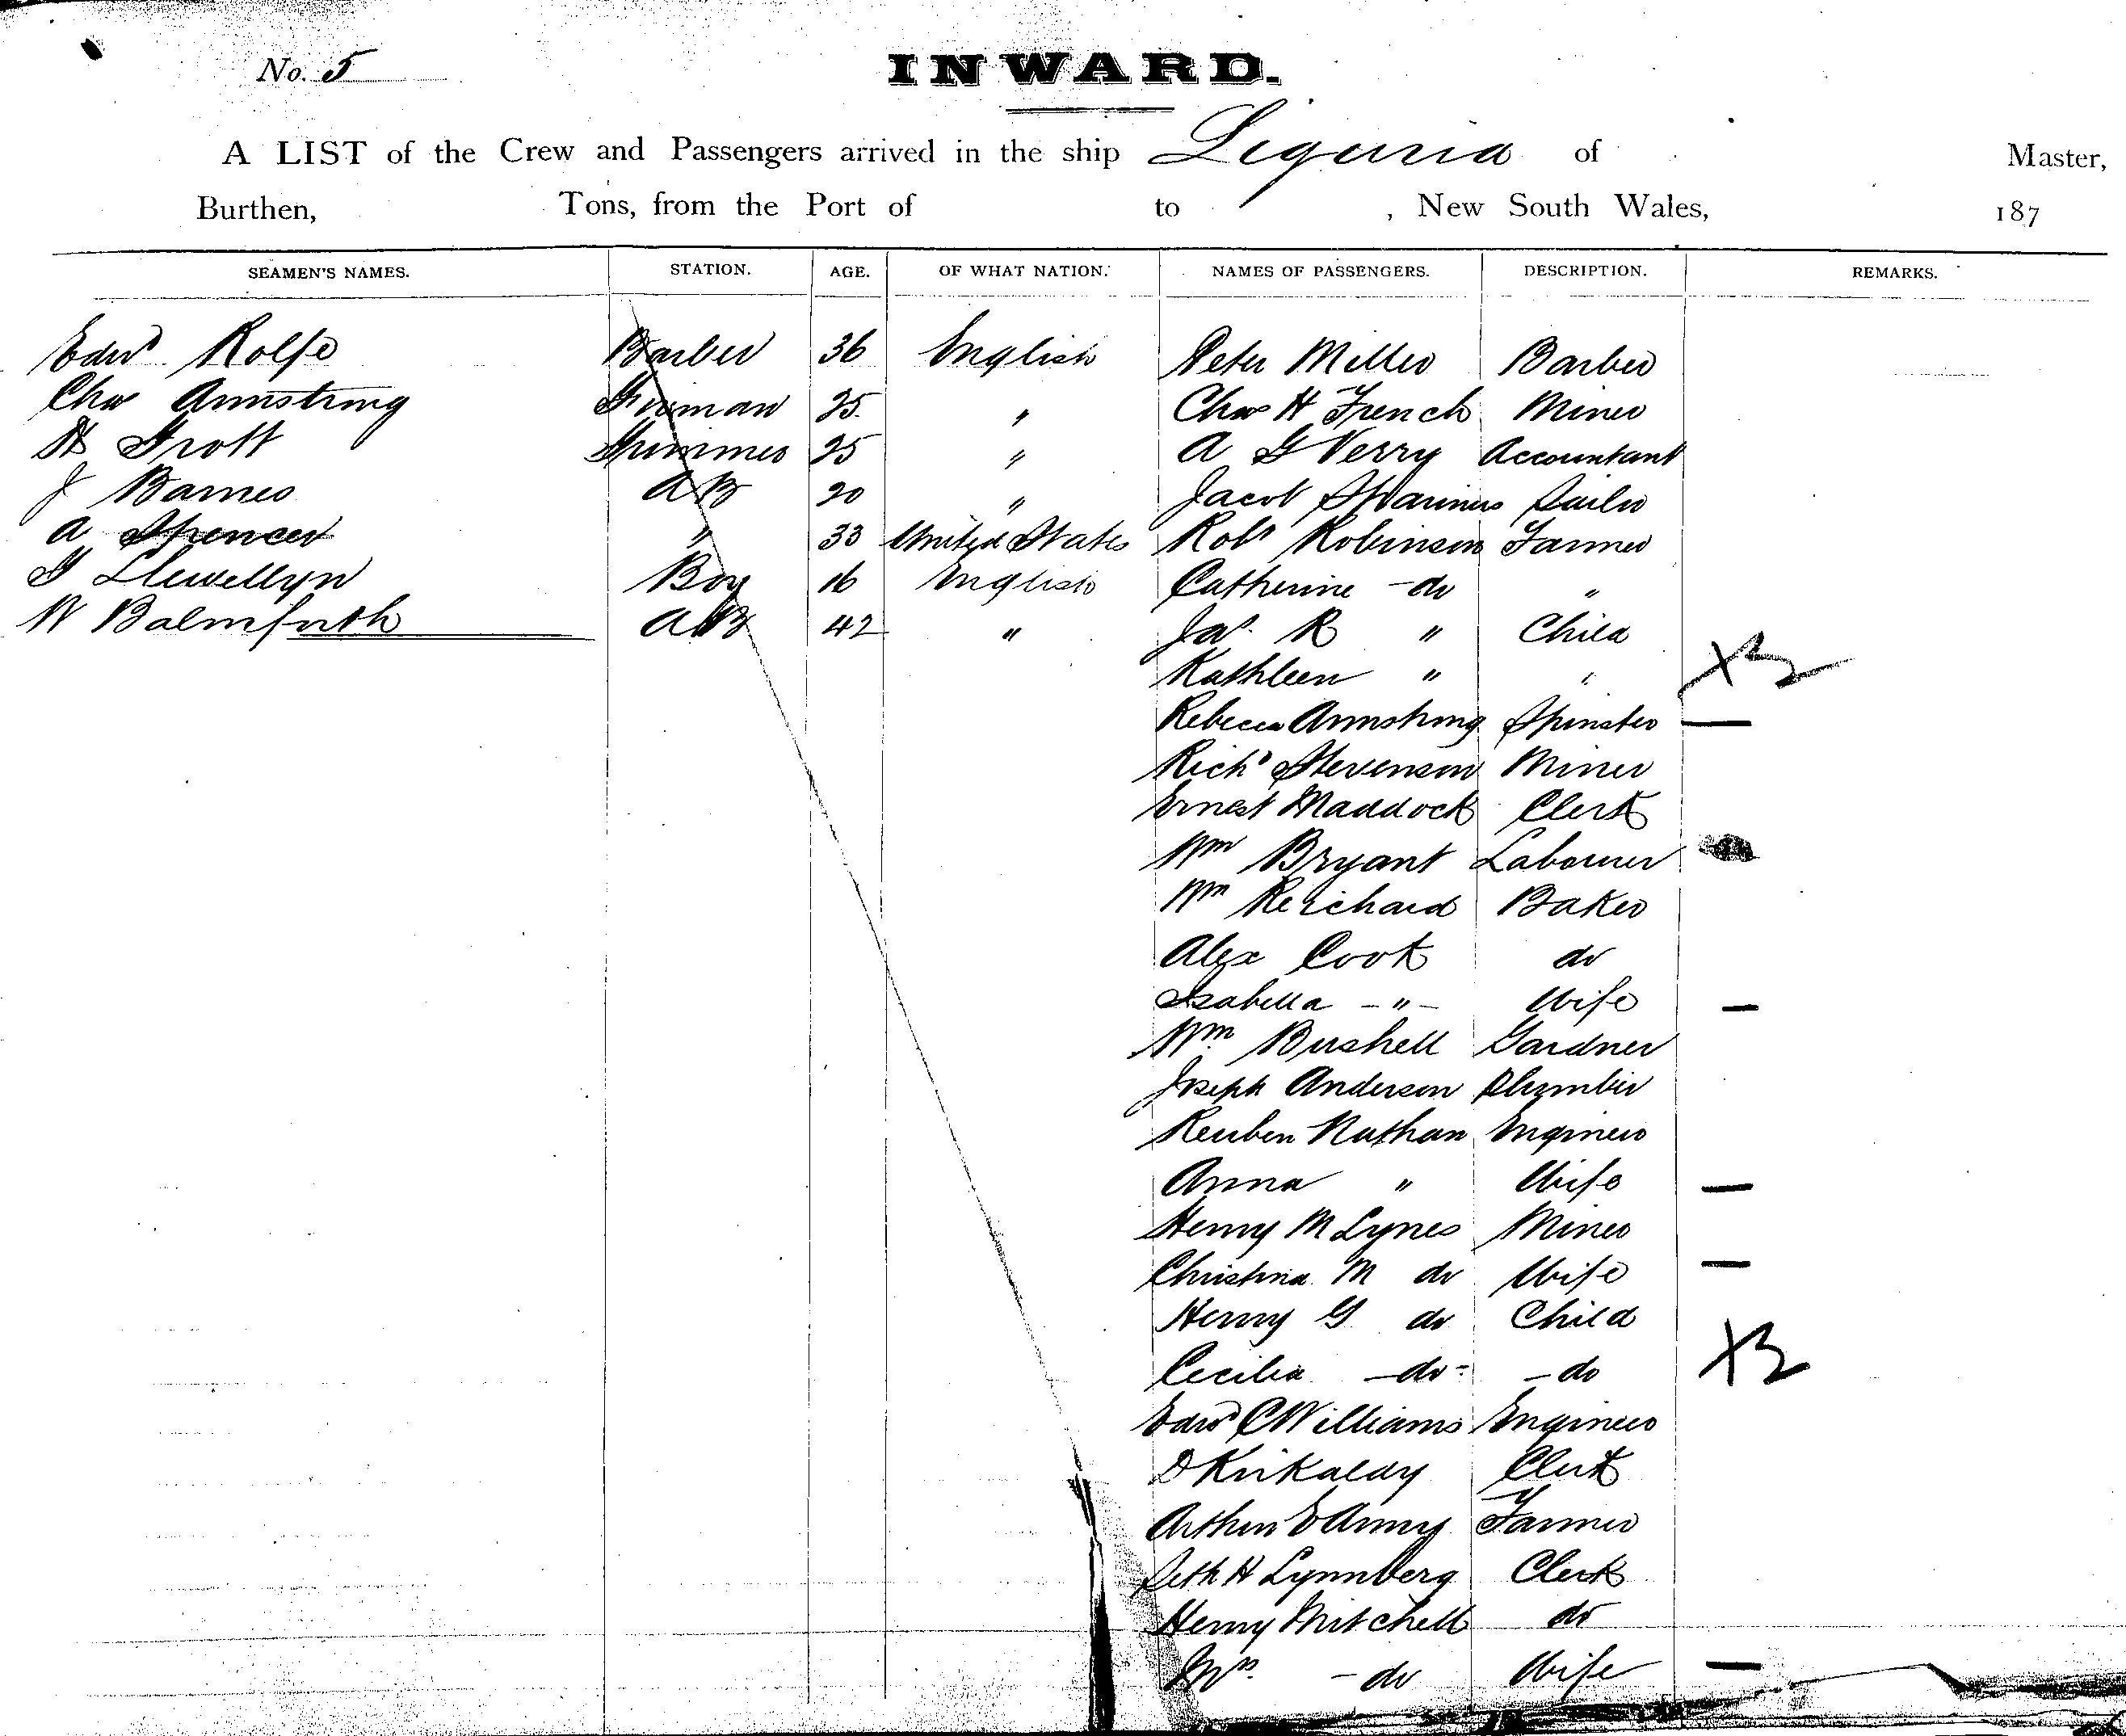 No. 5
INWARD.
A LIST of the Crew and Passengers arrived in the ship Liguria of Master,
Burthen, Tons, from the Port of to , New South Wales, 187
SEAMEN'S NAMES. STATION. AGE. OF WHAT NATION. NAMES OF PASSENGERS. DESCRIPTION. REMARKS.
Edwd Rolfe Barber 36 English Peter Miller Barber
Chas Armstrong Fireman 25 " Chas H French Miner
H Trott Trimmer 25 " A G Verry Accountant
J Barnes AB 20 " Jacob Sailor
A Spencer " 33 United States Robt Robinson Farmer
Llewellyn Boy 16 English Catherine - do "
W Balmforth AB 42 " Jas. R " Child
Kathleen " "
Rebecca Armstrong Spinster
Richd Stevenson Miner
Ernest Maddock Clerk
Wm Bryant Labourer
Wm Reichard Baker
Alex Cook do
Isabella - " - Wife
Wm. Bushell Gardner
Joseph Anderson Plumber
Reuben Nathan Engineer
Anna " Wife
Henry M Lynes Miner
Christina M do Wife
Henry G do Child
Cecilia - do - - do
Edwd C Williams Engineer
D Kirkaldy Clerk
Arthur E Farmer
Seth H Lynnberg Clerk
Henry Mitchell do
Mrs. - do Wife